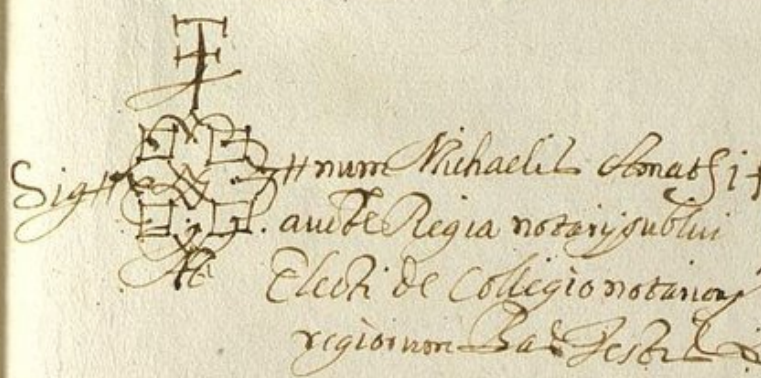 Sig++num Michaelis
aucte Regia notarij publici
Electi de Collegio notarior
regiorum Bar